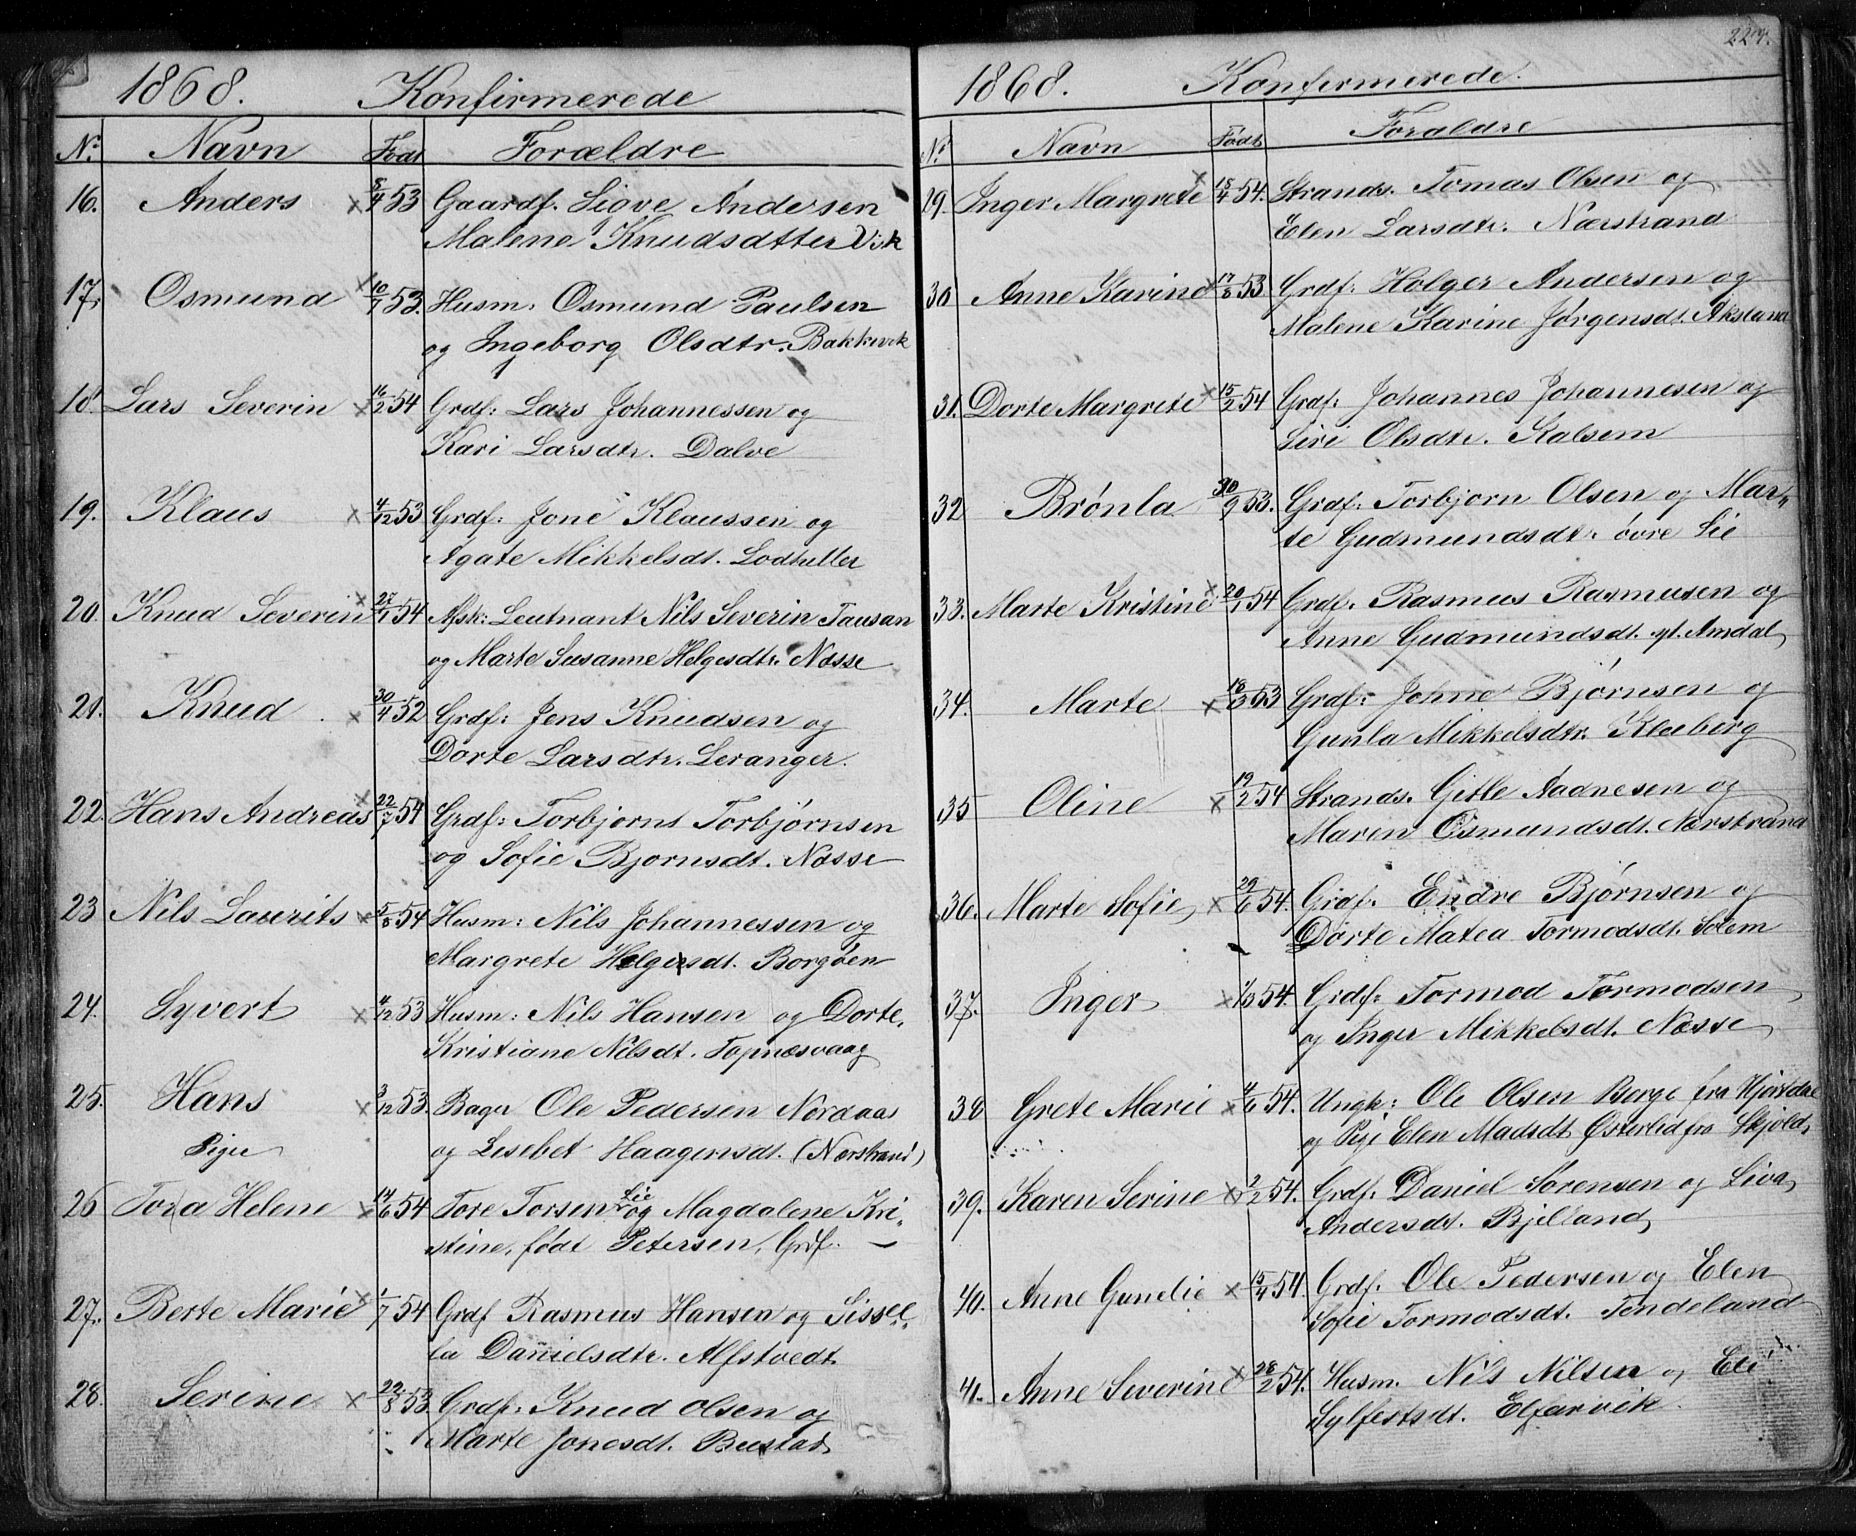 1868. Konfirmerede
Nr. Navn Født Forældre
16. Anders × 8/4 53 Gaardf. Siove Andersen
Malene Knudsdtter Vik
17. Osmund × 10/7 53. Husm: Osmund Paulsen
og Ingeborg Olsdtr. Bakkevik
18. Lars Severin × 16/2 54 Grdf: Lars Johannessen og
Kari Larsdtr. Dalve
19. Klaus × 4/12 53 Grdf: Jone Klaussen og
Agate Mikkelsdt. Lodtuller
20. Knud Severin × 27/1 54 Afsk: Leutnant Nils Severin Tausan
og Marte Susanne Helgesdtr. Næsse
21. Knud × 30/4 52 Grdf: Jens Knudsen og
Dorte Larsdtr. Leranger.
22. Hans Andreas × 22/7 54 Grdf: Torbjorns Torbjørnsen
og Sofie Bjornsdt. Næsse
23 Nils Laurits × 5/8 54 Husm: Nils Johannessen og
Margrete Holgersdt. Borgøen
24. Syvert × 4/12 53 Husm: Nils Hansen og Dorte
Kristiane Nilsdt. Topnæsvaag
25. Hans × 3/12 53. Bager Ole Pedersen Nordaas
Piger og Lisebet Haagensdt. (Nærstrand)
26 Tora Helene × 14/6 54 Tore Torsen Lie og Magdalene Kri-
stine, født Petersen, Grdf.
27. Berte Marie × 1/7 54 Grdf Rasmus Hansen og Sissel-
la Danielsdtr. Alfstvedt
28. Serine × 22/8 53. Grdf: Knud Olsen og
Marte Jonesdt. Bustad
227.
1868. Konfirmerede.
Nr. Navn Født Foraldre
29. Inger Margrete × 18/4 54. Strands. Tomas Olsen og
Elen Larsdtr. Nærstrand
30 Anne Karine × 17/8 53 Grdf: Holger Andersen og
Malene Karine Jørgensdt. Aksland
31. Dorte Margrete × 15/2 54 Grdf: Johannes Johannesen og
Siri Olsdtr. Kalsem
32 Brønla 30/9 53. Grdf: Torbjorn Olsen og Mar-
te Gudmundsdt. øvre Lie
33. Marte Kristine × 20/1 54 Grdf. Rasmus Rasmusen og
Anne Gudmundsdt. yt. Amdal
34. Marte × 18/3 53 Grdf: Johne Bjørnsen og
Gunla Mikkelsdtr. Kleeberg
35 Oline × 19/2 54 Strands. Gitle Aadnesen og
Maren Osmundsdt. Nærstrand
36. Marte Sofie × 29/6 54. Grdf. Endre Bjørnsen og
Dorte Matea Tormodsdt. Solem
37. Inger × 1/3 54. Grdf: Tormod Tormodsen
og Inger Mikkelsdt. Næsse
38 Grete Marie × 4/6 54. Ungk: Ole Olsen Berge fra Hjørtdal
og Pige Elen Madsdt Østerlid fra Skjold
39. Karen Serine × 2/2 54. Grdf. Daniel Sørensen og Liva
Andersdt. Bjelland
40. Anne Gunelie × 15/4 54. Grdf. Ole Pedersen og Elen
Sofie Tormodsdt. Tendeland
41. Anne Severine × 28/2 54. Husm. Nils Nilsen og Eli
Sylfestsdt. Elfarvik.